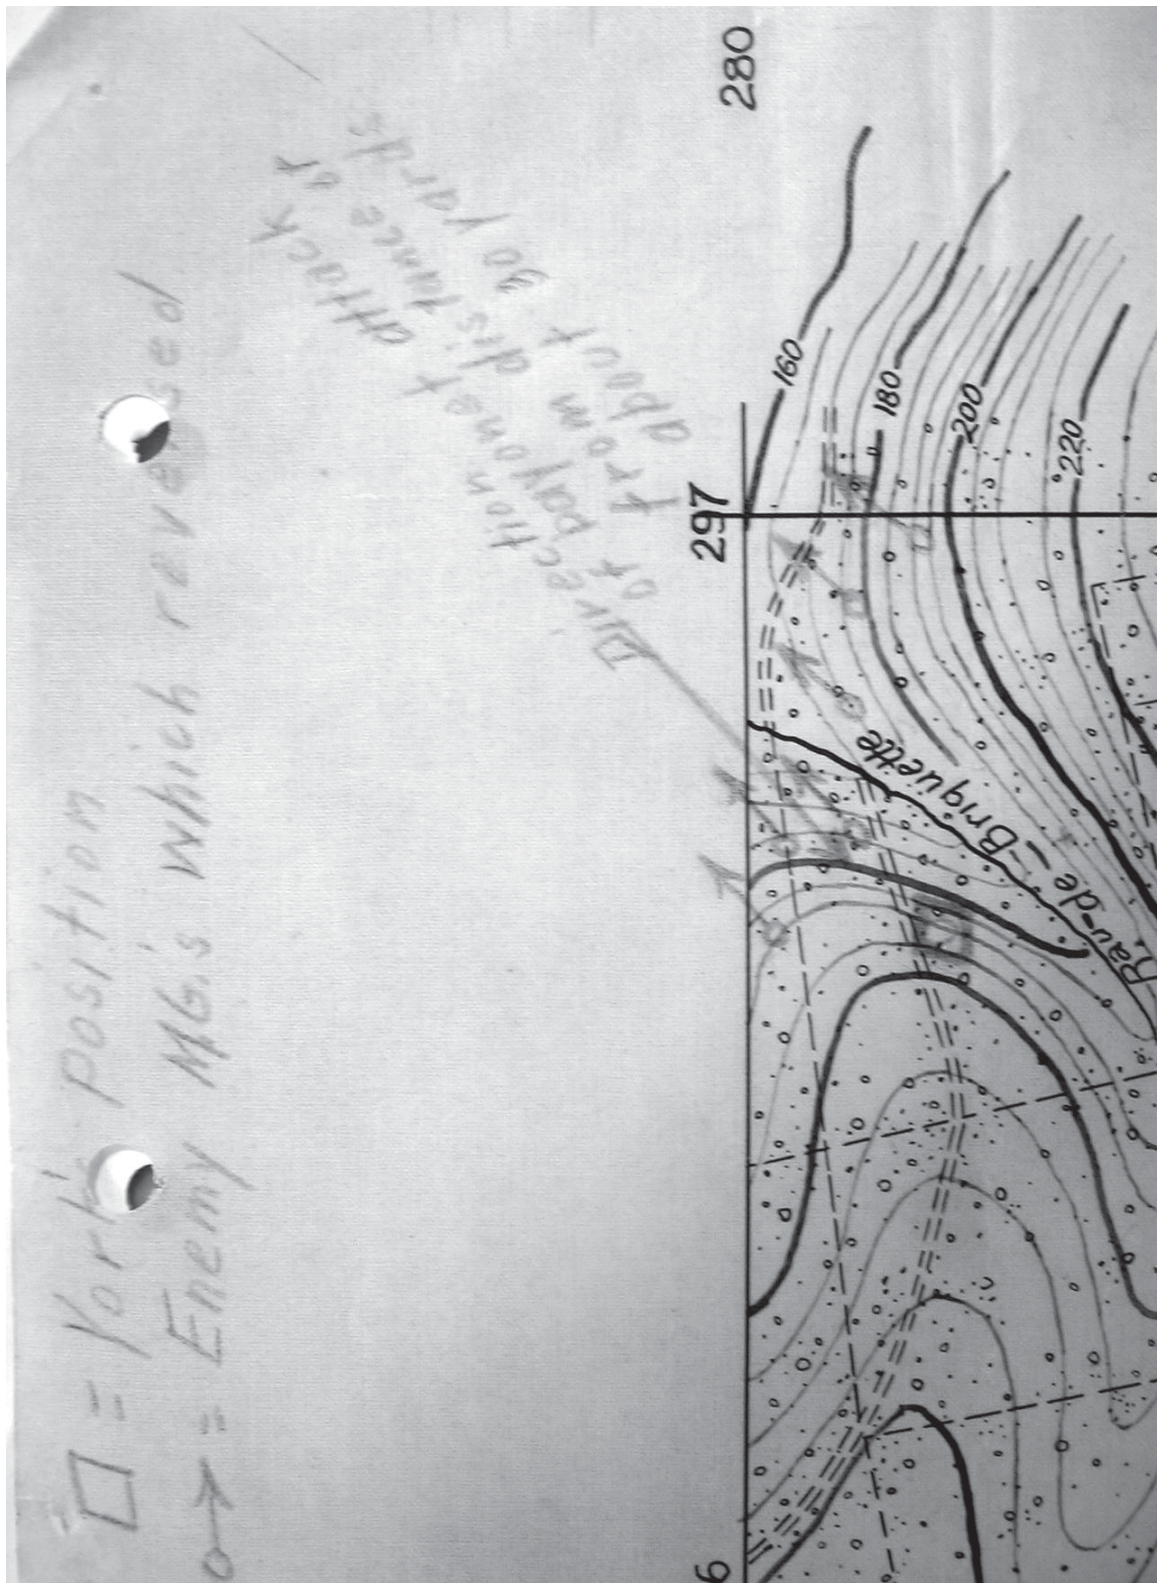 □ = York' position
= Enemy MG's which reversed
Direction attack
of bayonet at
from distance of
about 30 yards
280
297
160
180
200
220
Rau-de-Briquette
6